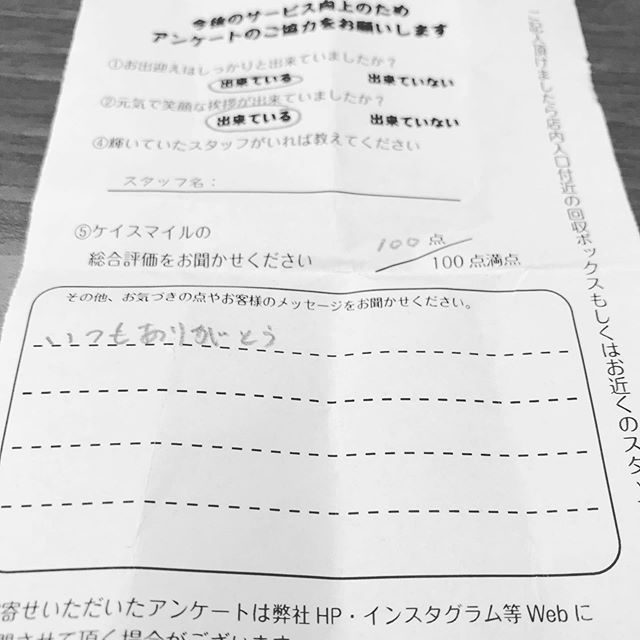 今後のサービス向上のため
アンケートのご協力をお願いします
①お出迎えはしっかりと出来ていましたか？
出来ている 出来ていない
②元気で笑顔な挨拶が出来ていましたか？
出来ている 出来ていない
④輝いていたスタッフがいれば教えてください
スタッフ名：
⑤ケイスマイルの
総合評価をお聞かせください
100 点
100 点満点
その他、お気づきの点やお客様のメッセージをお聞かせください。
いつもありがとう
寄せいただいたアンケートは弊社 HP・インスタグラム等 Web に
させて頂く場合がございます
ご記入頂けましたら店内入口付近の回収ボックスもしくはお近くのスタッ